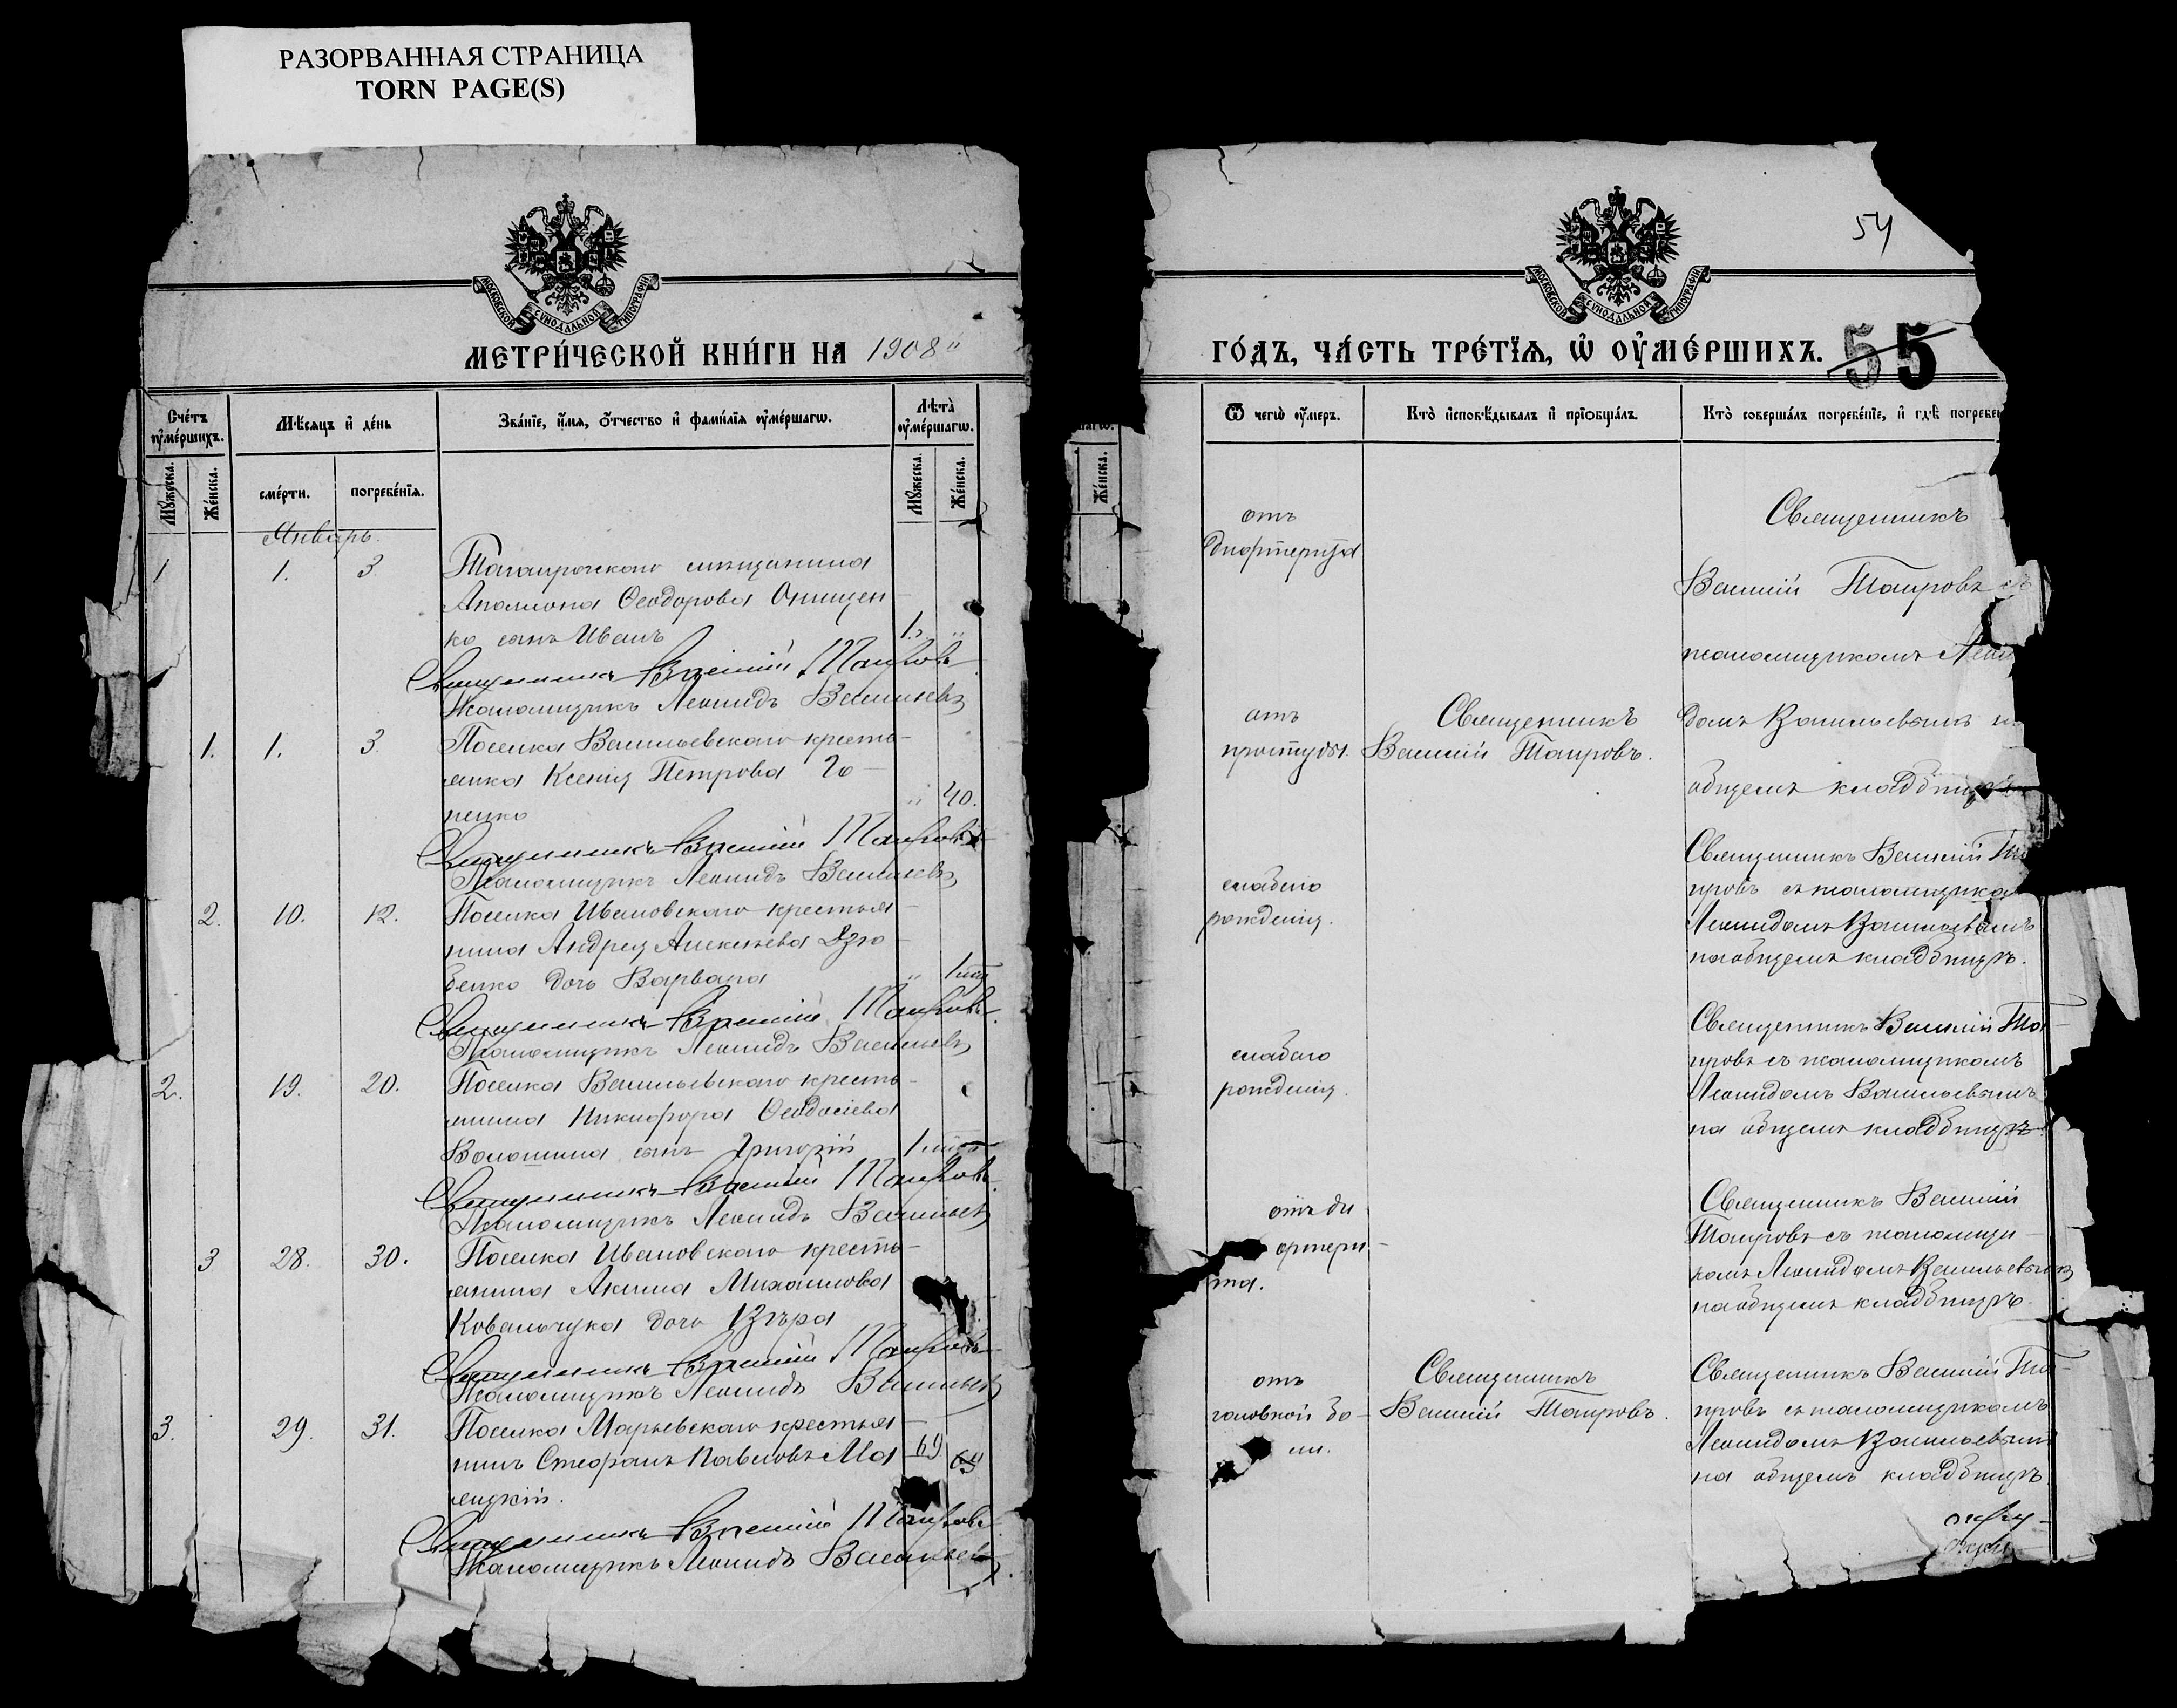 РАЗОРВАННАЯ СТРАНИЦА
TORN PAGE(S)
МОСКОВСКОЙ СѴНОДАЛЬНОЙ ТИПОГРАФІИ
МЕТРИ́ЧЕСКОЙ КНИ́ГИ НА 1908
Сче́тъ ѹ҆ме́ршихъ.
Мѣ́сяцъ и҆ де́нь
Зва́нїе, и҆́мя, ѻ҆́тчество и҆ фами́лїя ѹ҆ме́ршагѡ.
Лѣта̀ ѹ҆ме́ршагѡ.
Мꙋ́жеска.
Же́нска.
сме́рти.
погребе́нїя.
Мꙋ́жеска.
Же́нска.
Январь.
1 1. 3 Таганрогскаго мещанина
Аполлона Ѳеодорова Онищен-
ко сынъ Иванъ 1. "
Священникъ Василій Таировъ
Псаломщикъ Леонидъ Васильевъ
1. 1. 3. Поселка Васильевскаго кресть-
янка Ксенія Петрова Го-
ненко " 40.
Священникъ Василій Таировъ
Псаломщикъ Леонидъ Васильевъ
2. 10. 12. Поселка Ивановскаго крестья-
нина Андрея Алексѣева Дзю-
бенко дочь Варвара "
Священникъ Василій Таировъ.
Псаломщикъ Леонидъ Васильевъ
2. 19. 20. Поселка Васильевскаго кресть-
янина Никифора Ѳеодосіева
Волошина сынъ Григорій
Священникъ Василій Таировъ.
Псаломщикъ Леонидъ Васильевъ
3 28. 30. Поселка Ивановскаго кресть-
янина Акима Михайлова
Ковальчука дочь Вѣра
Священникъ Василій Таировъ
Псаломщикъ Леонидъ Васильевъ
3. 29. 31. Поселка Марьевскаго крестья-
нинъ Стефанъ Павловъ Ма- 69
лицкій.
Священникъ Василій Таировъ
Псаломщикъ Леонидъ Васильевъ
Же́нска.
54
МОСКОВСКОЙ СѴНОДАЛЬНОЙ ТИПОГРАФІИ
ГО́ДЪ, ЧА́СТЬ ТРЕ́ТЇѦ, Ѡ҆ ОУ҆МЕ́РШИХЪ. 55
Ѿ чегѡ̀ ѹ҆́меръ.
Кто̀ и҆сповѣ́дывалъ и҆ прїѡбща́лъ.
Кто̀ соверша́лъ погребе́нїе, и҆ гдѣ̀ погребе
отъ
дифтерита
Священникъ
Василій Таировъ съ
псаломщикомъ Леони
домъ Васильевымъ на
общемъ кладбищѣ
отъ
простуды.
Священникъ
Василій Таировъ.
слабаго
рожденія.
Священникъ Василій Та
ировъ съ псаломщико
Леонидомъ Васильевымъ
на общемъ кладбищѣ.
слабаго
рожденія.
Священникъ Василій Та-
ировъ съ псаломщикомъ
Леонидомъ Васильевымъ
на общемъ кладбищѣ.
отъ ди
фтери-
та.
Священникъ Василій
Таировъ съ псаломщи-
комъ Леонидомъ Васильевымъ
на общемъ кладбищѣ.
отъ
головной бо-
ли.
Священникъ
Василій Таировъ.
Священникъ Василій Та-
ировъ съ псаломщикомъ
Леонидомъ Васильевымъ
на общемъ кладбищѣ.